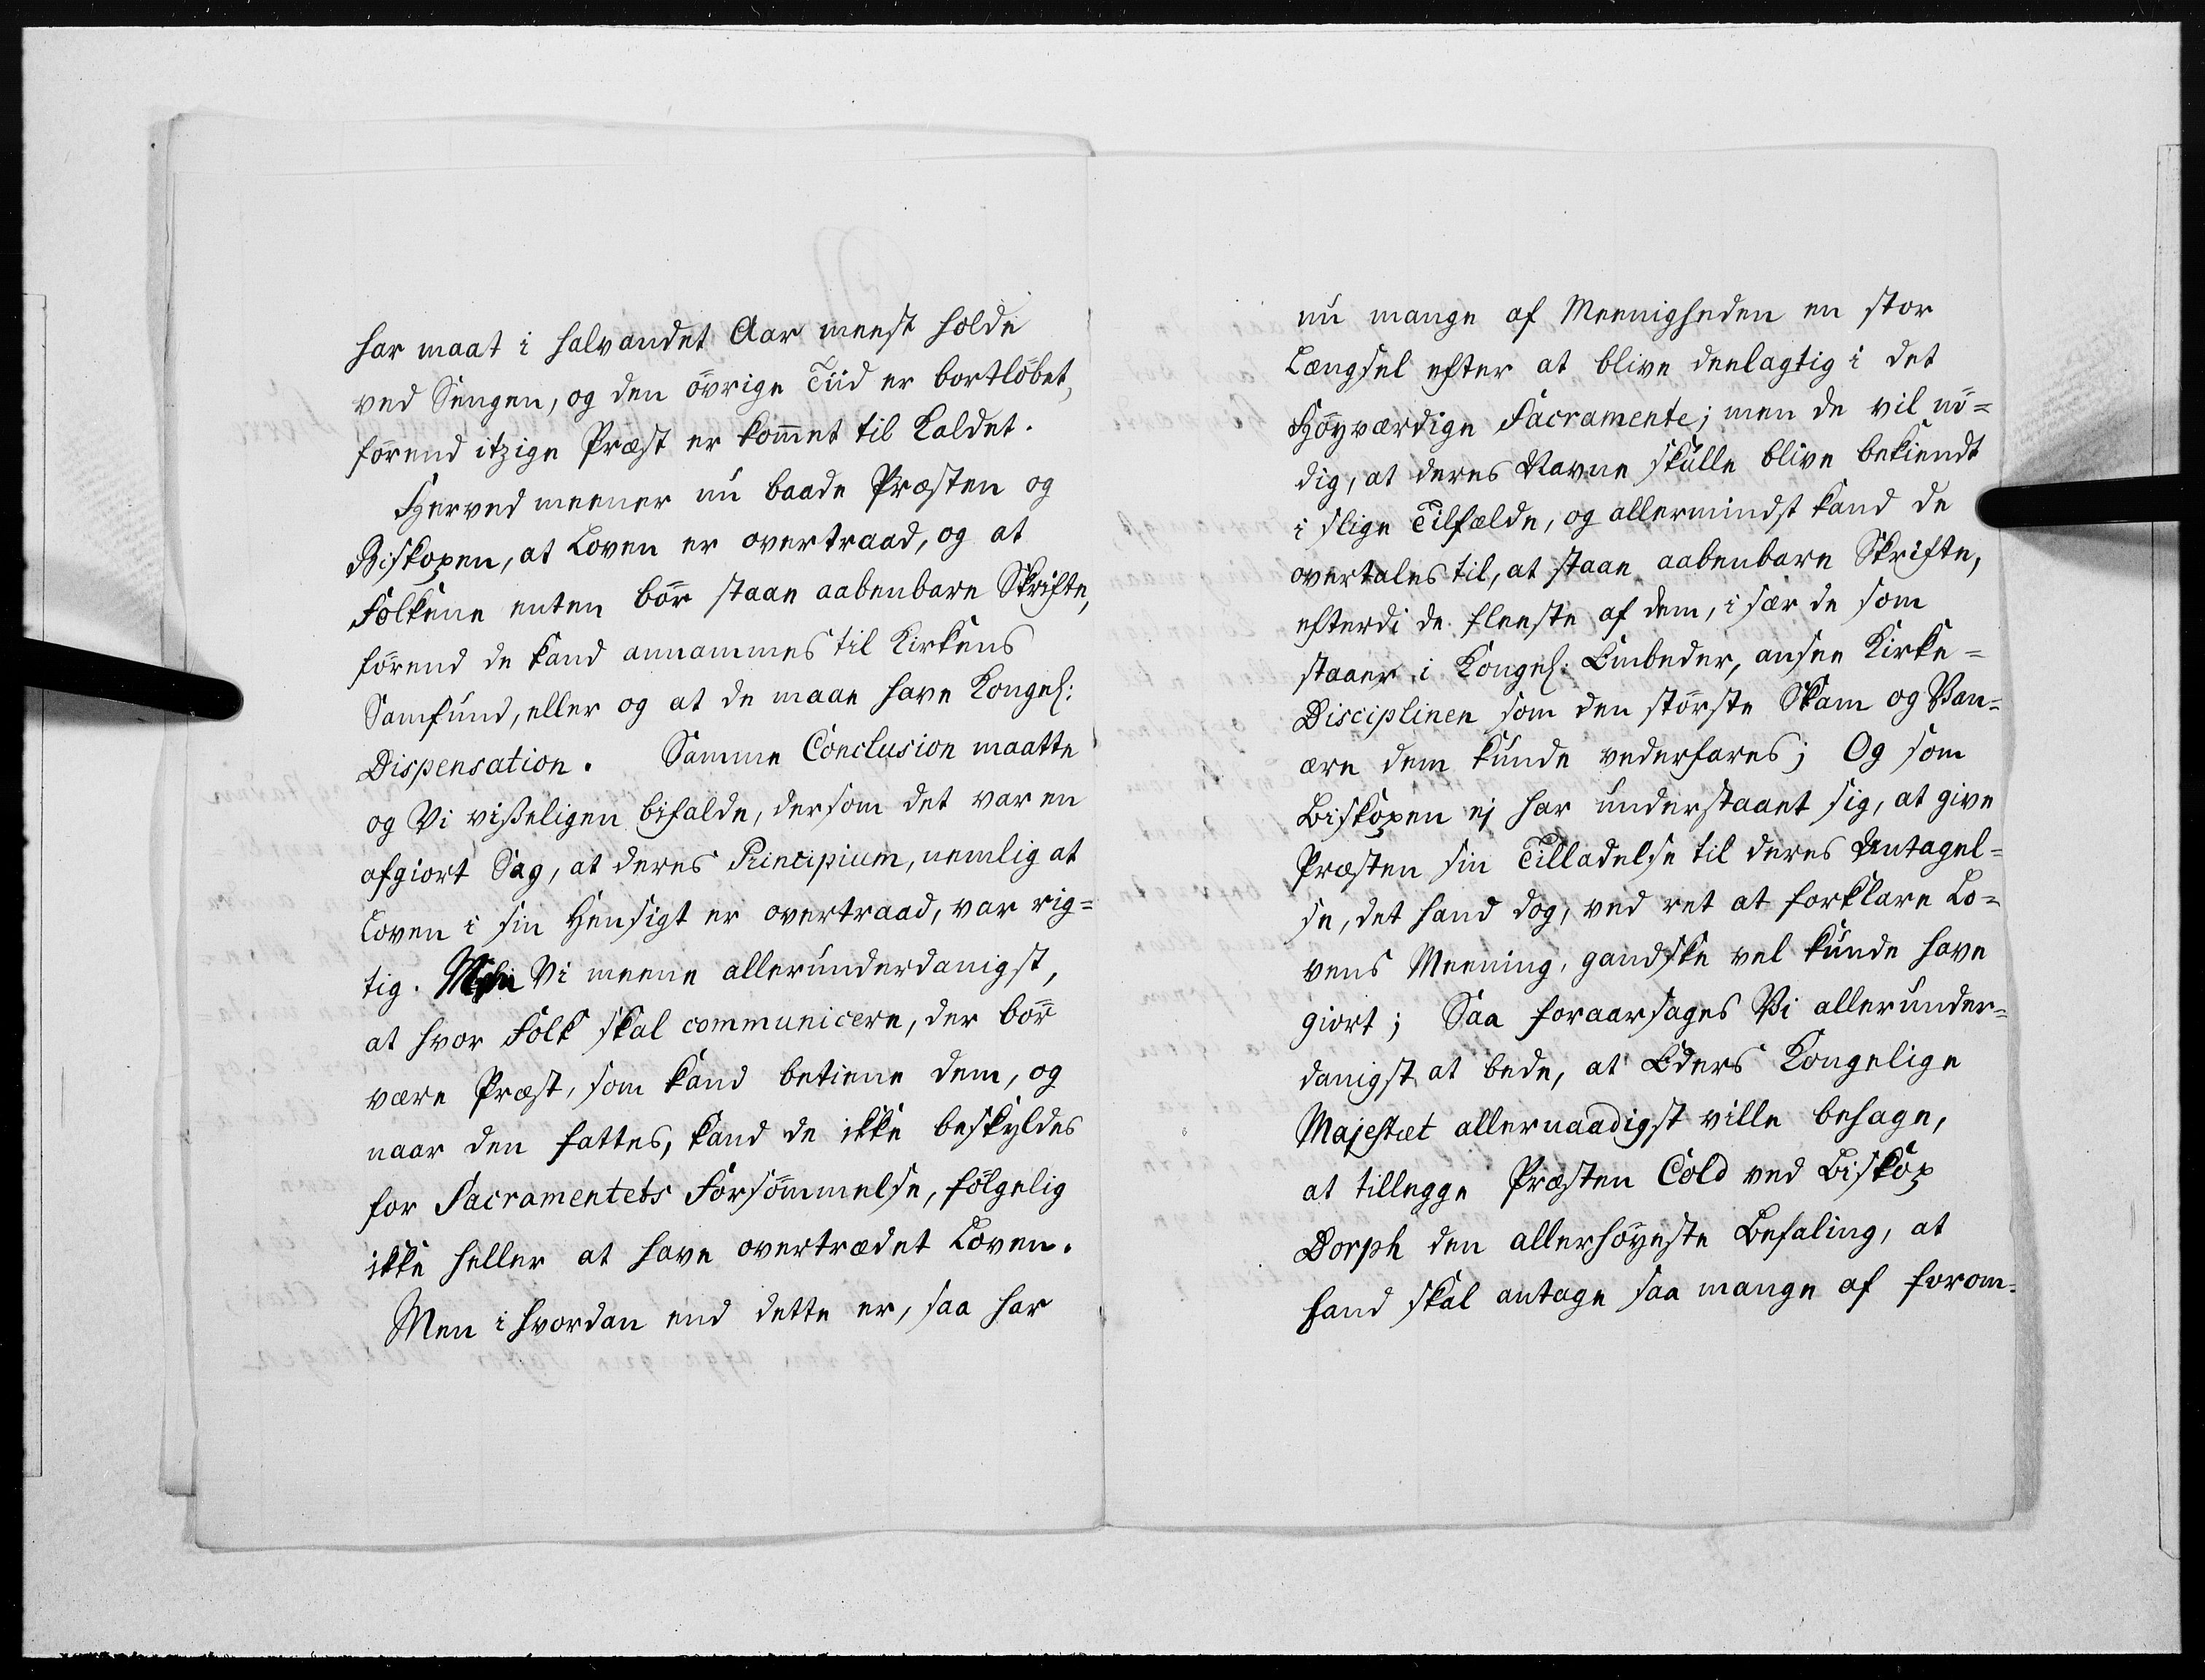 har maat i halvandet Aar meest holde
ved Sengen, og den övrige Tiid er bortlöbet,
förend itzige Præst er kom̅et til Kaldet.
Herved meener nu baade Præsten og
Biskopen, at Loven er overtraad, og at
Folkene enten bör staae aabenbare Skrifte,
förend de kand annammes til Kirkens
Samfund, eller og at de maae have Kongel:
Dispensation. Samme Conclusion maatte
og Vi visseligen bifalde, dersom det var en
afgiort Sag, at deres Principium, nemlig at
Loven i sin Hensigt er overtraad, var rig=
tig. Men Vi meene allerunderdanigst,
at hvor Folk skal communicere, der bör
være Præst, som kand betiene dem, og
naar den fattes, kand de ikke beskyldes
for Sacramentets Forsömmelse, fölgelig
ikke heller at have overtrædet Loven.
Men i hvordan end dette er, saa har
nu mange af Meenigheden en stor
Længsel efter at blive deelagtig i det
Höyværdige Sacramente; men de vil nö=
dig, at deres Navne skulle blive bekiendt
i slige Tilfælde, og allermindst kand de
overtales til, at staae aabenbare Skrifte,
efterdi de fleeste af dem, i sær de som
staaer i Kongel: Embeder, ansee Kirke=
Disciplinen som den störste Skam og Van=
ære dem kunde vederfares; Og som
Biskopen ej har understaaet sig, at give
Præsten sin Tilladelse til deres Antagel=
se, det hand dog, ved ret at forklare Lo=
vens Meening, gandske vel kunde have
giort; Saa foraarsages Vi allerunder=
danigst at bede, at Eders Kongelige
Majestæt allernaadigst ville behage,
at tillegge Præsten Cold ved Biskop
Dorph den allerhöyeste Befaling, at
hand skal antage saa mange af forom-